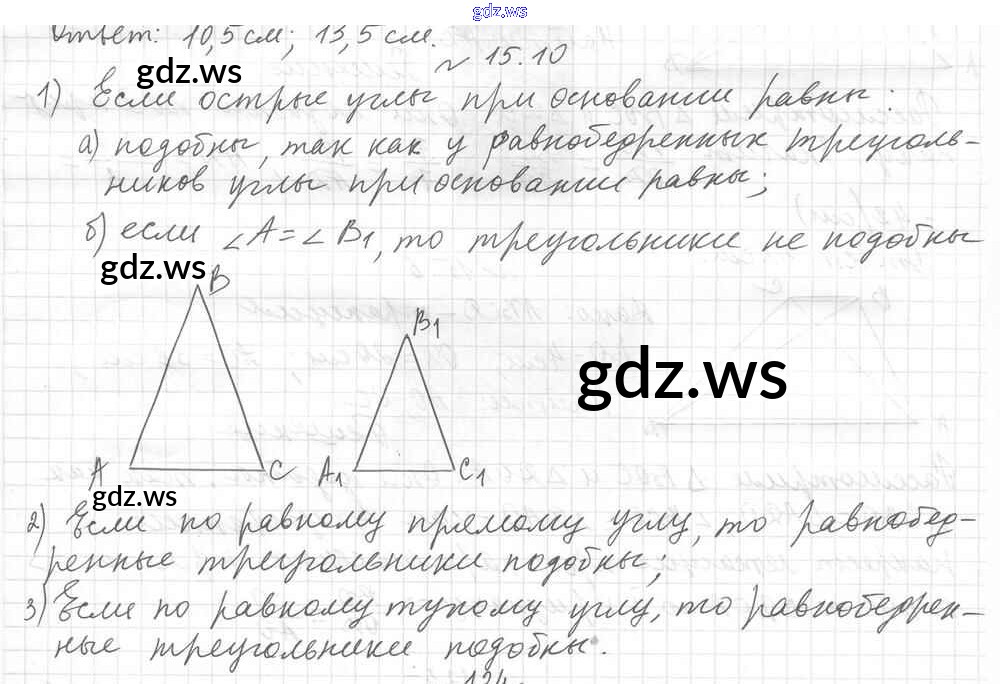 gdz.ws
Ответ: 10,5 см; 13,5 см.
gdz.ws
№ 15.10
1) Если острые углы при основании равны:
а) подобны, так как у равнобедренных треуголь-
ников углы при основании равны;
б) если ∠A = ∠B1, то треугольники не подобны
gdz.ws
B
B1
gdz.ws
A
C
A1
C1
gdz.ws
2) Если по равному прямому углу, то равнобед-
ренные треугольники подобны;
3) Если по равному тупому углу, то равнобедрен-
ные треугольники подобны.